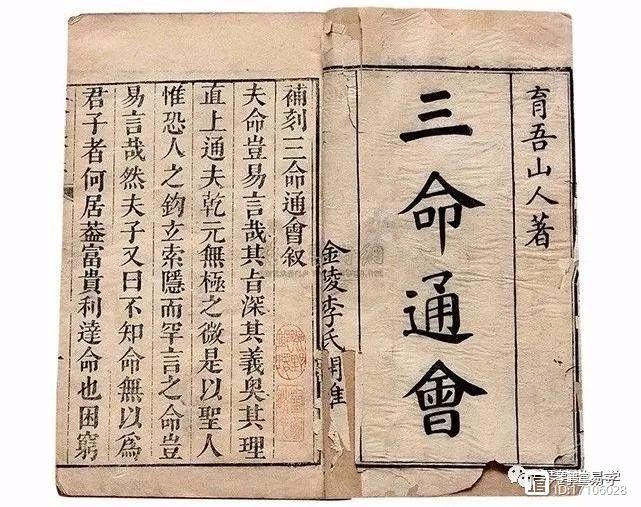 育吾山人著
三命通會
金陵李氏
補刻三命通會叙
夫命豈易言哉其旨深其義奥其理
直上通夫乾元無極之微是以聖人
惟恐人之鉤玄索隱而罕言之命豈
易言哉然夫子又曰不知命無以為
君子者何居葢富貴利達命也困窮
易学
ID:17106028